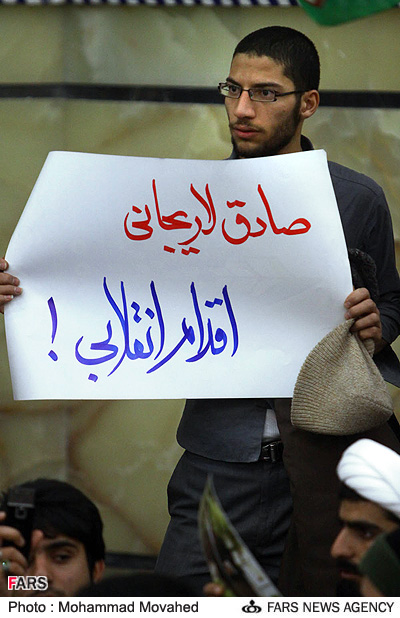 صادق لاریجانی
اقدام انقلابی !
FARS
Photo : Mohammad Movahed
FARS NEWS AGENCY